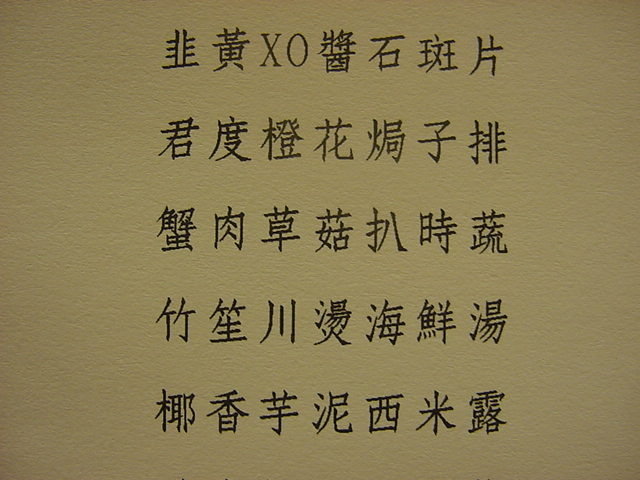 韭黃XO醬石斑片
君度橙花焗子排
蟹肉草菇扒時蔬
竹笙川燙海鮮湯
椰香芋泥西米露